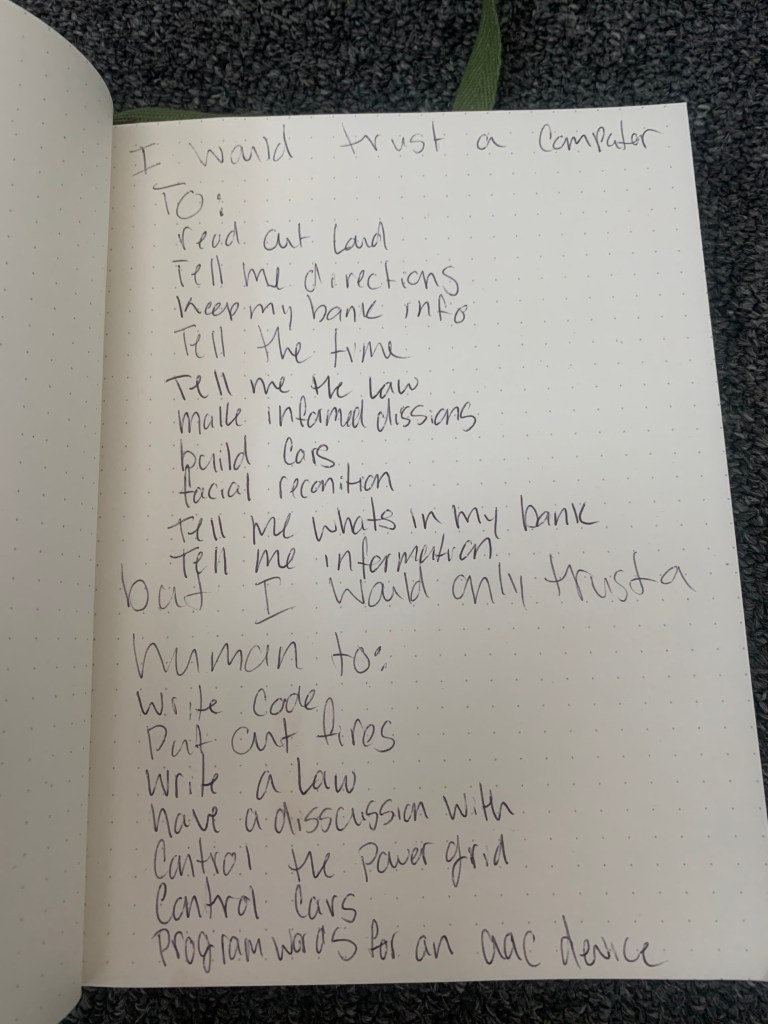 I would trust a Computer
TO:
read out loud
Tell me directions
Keep my bank info
Tell the time
Tell me the law
make informed dissions
build Cars
facial reconition
Tell me whats in my bank
Tell me information
but I would only trust a
human to:
Write Code
Put out fires
Write a Law
have a disscussion with
Control the power grid
Control Cars
Program words for an aac device